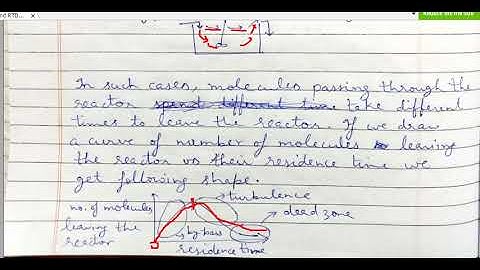 nd RTD...
In such cases, molecules passing through the
reactor spend different time take different
times to leave the reactor. If we draw
a curve of number of molecules leaving
the reactor vs their residence time we
get following shape.
turbulence
no. of molecules
leaving the
reactor
dead zone
by-pass
residence time